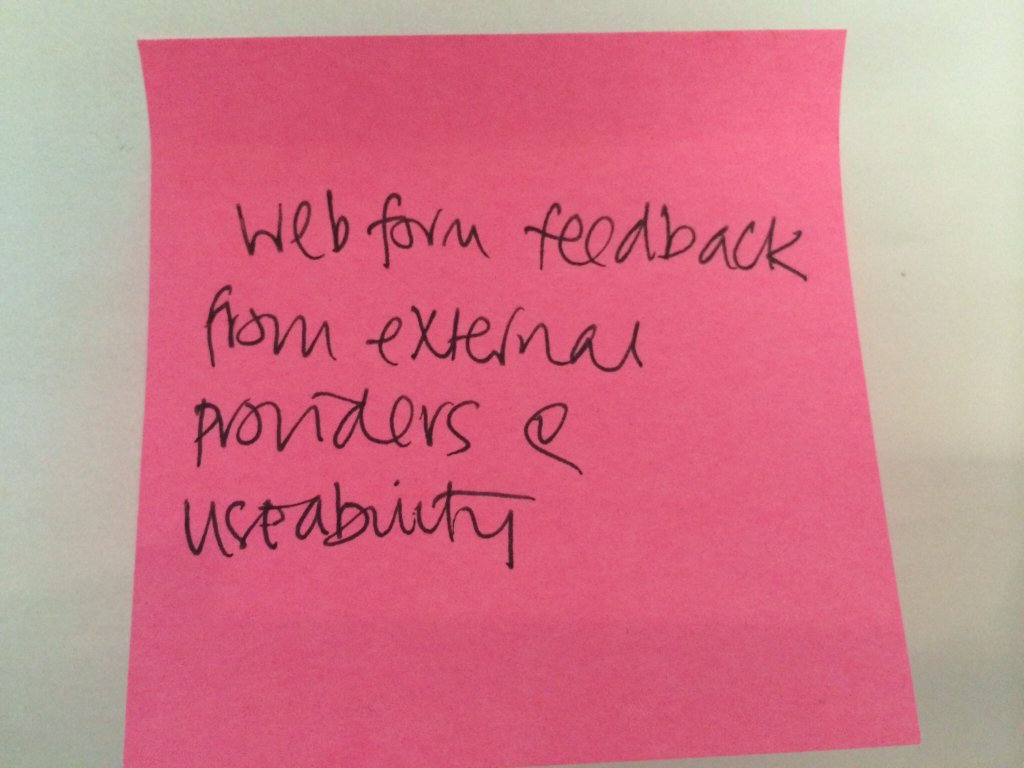 Web form feedback
from external
providers @
useability